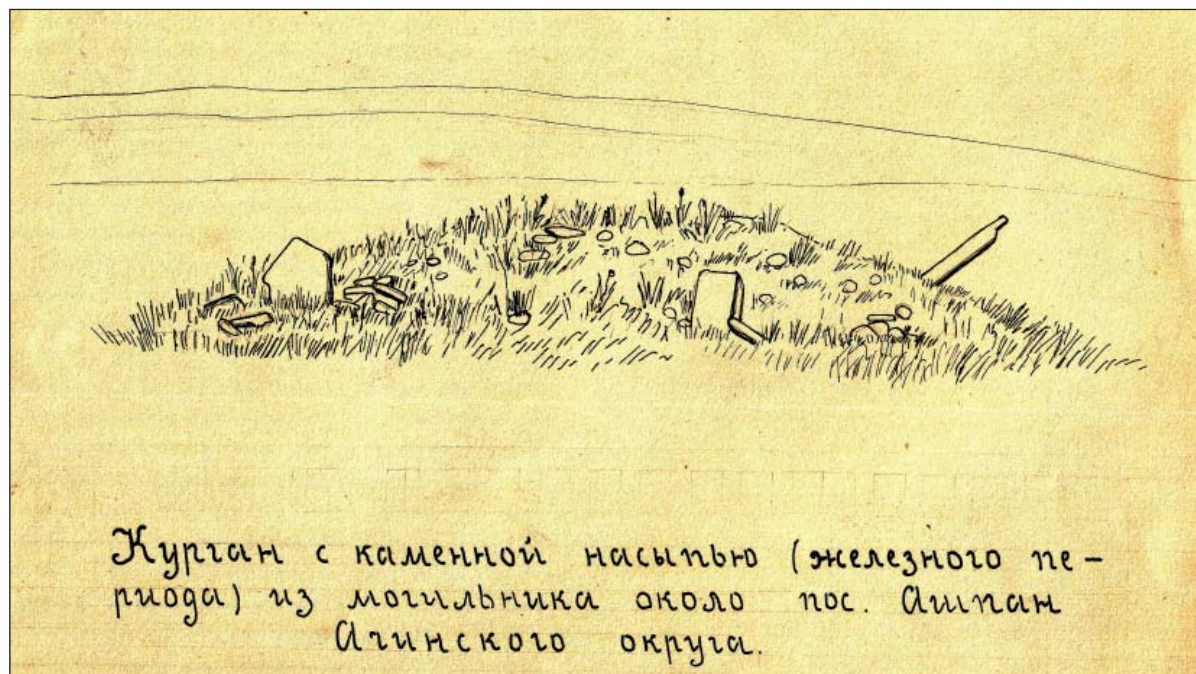 Курган с каменной насыпью (железного пе-
риода) из могильника около пос. Ашпан
Ачинского округа.